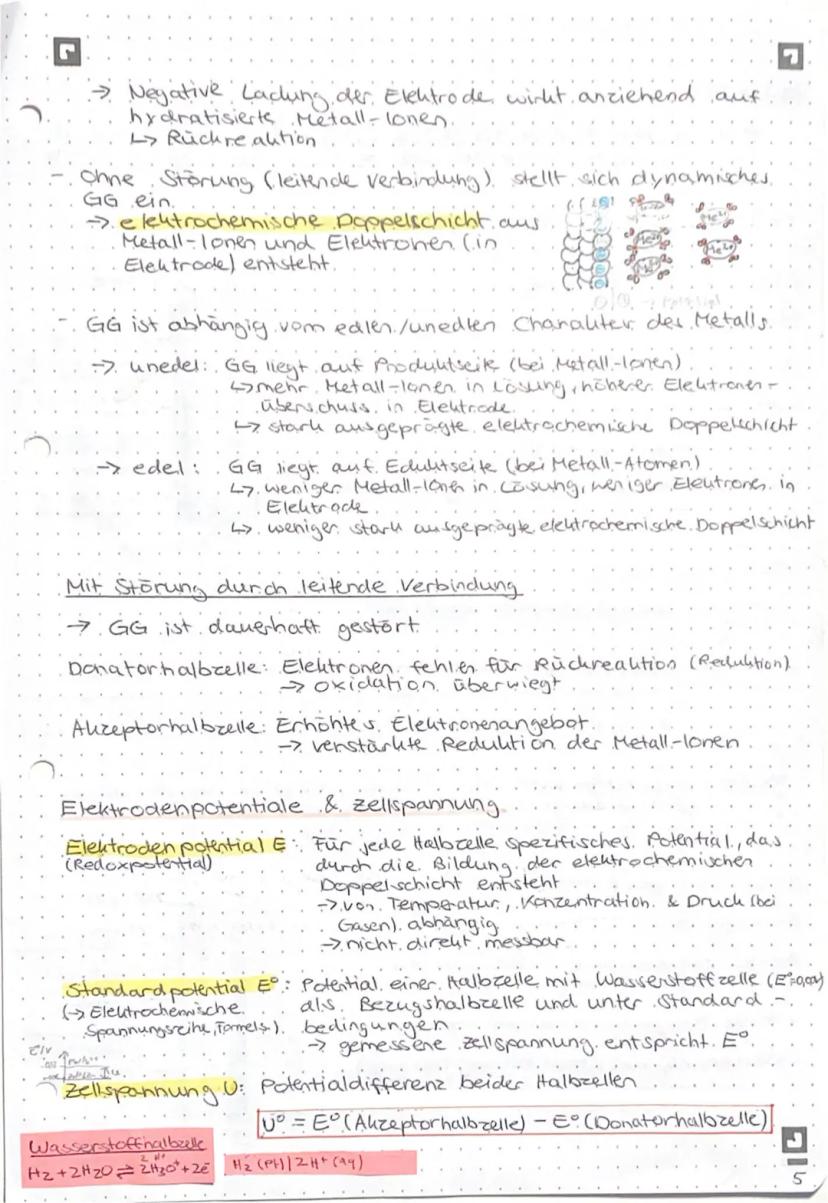 → Negative Ladung der Elektrode wirkt anziehend auf
hydratisierte Metall-Ionen
↳ Rückreaktion
- Ohne Störung (leitende Verbindung) stellt sich dynamisches
GG ein
→ elektrochemische Doppelschicht aus
Metall-Ionen und Elektronen (in
Elektrode) entsteht
- GG ist abhängig vom edlen/unedlen Charakter des Metalls
→ unedel: GG liegt auf Produktseite (bei Metall-Ionen)
↳ mehr Metall-Ionen in Lösung, höherer Elektronen-
überschuss in Elektrode
↳ stark ausgeprägte elektrochemische Doppelschicht
→ edel: GG liegt auf Eduktseite (bei Metall-Atomen)
↳ weniger Metall-Ionen in Lösung, weniger Elektronen in
Elektrode
↳ weniger stark ausgeprägte elektrochemische Doppelschicht
Mit Störung durch leitende Verbindung
→ GG ist dauerhaft gestört
Donatorhalbzelle: Elektronen fehlen für Rückreaktion (Reduktion)
→ Oxidation überwiegt
Akzeptorhalbzelle: Erhöhtes Elektronenangebot
→ verstärkte Reduktion der Metall-Ionen
Elektrodenpotentiale & Zellspannung
Elektrodenpotential E: Für jede Halbzelle spezifisches Potential, das
(Redoxpotential) durch die Bildung der elektrochemischen
Doppelschicht entsteht
→ von Temperatur, Konzentration & Druck (bei
Gasen) abhängig
→ nicht direkt messbar
Standardpotential E°: Potential einer Halbzelle mit Wasserstoffzelle (E°=0,0V)
(→ Elektrochemische als Bezugshalbzelle und unter Standard-
Spannungsreihe, Formels.) bedingungen
→ gemessene Zellspannung entspricht E°
E/V
Zellspannung U: Potentialdifferenz beider Halbzellen
U° = E° (Akzeptorhalbzelle) - E° (Donatorhalbzelle)
Wasserstoffhalbzelle
2 H⁺
H₂ + 2H₂O ⇌ 2H₃O⁺ + 2e⁻ H₂ (Pt) | 2H⁺ (aq)
5